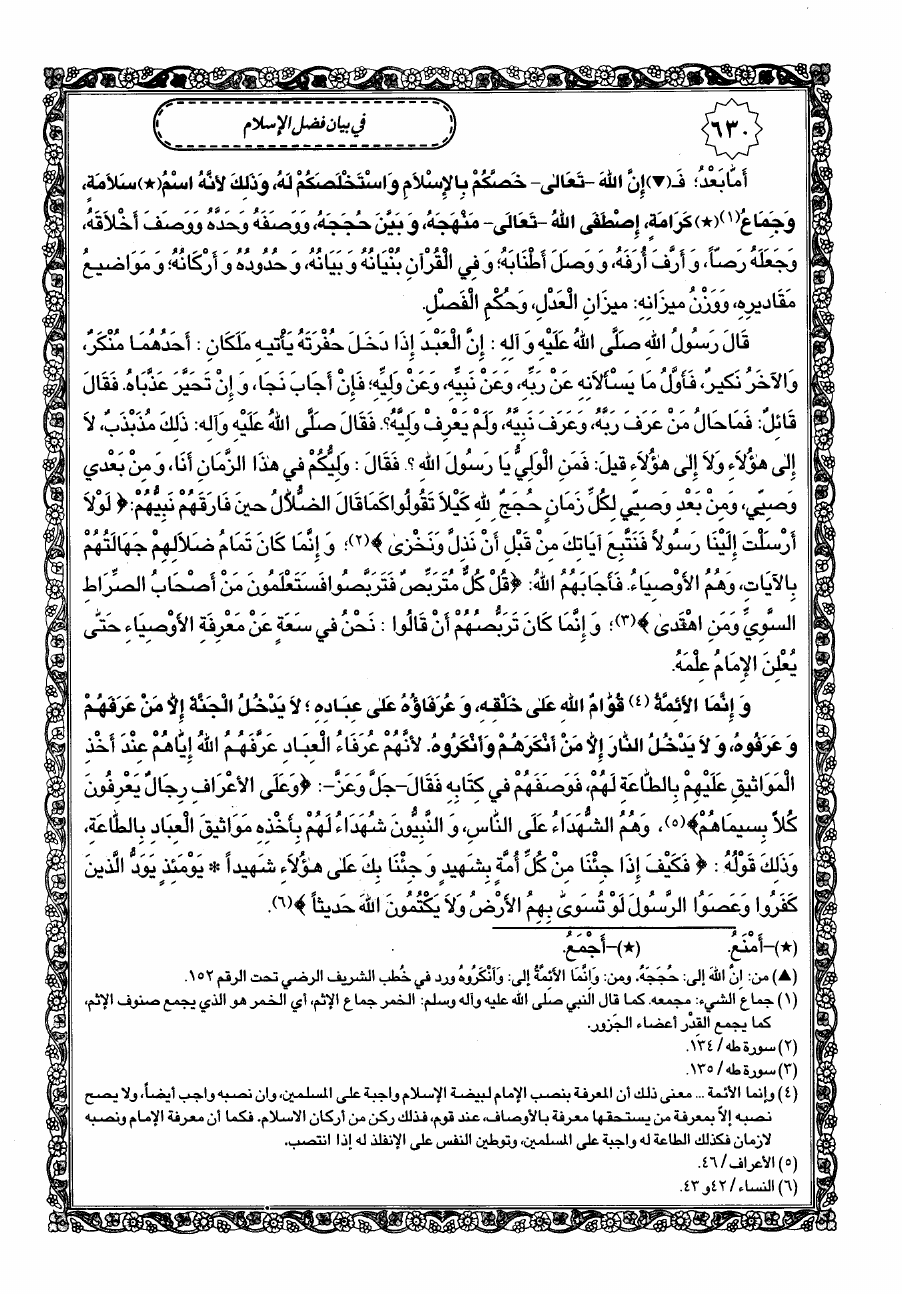 ٦٣٠
في بيان فضل الإسلام
أَمَّا بَعْدُ؛ فَـ(▼) إِنَّ اللهَ -تَعَالىٰ- خَصَّكُمْ بِالإِسْلاَمِ وَاسْتَخْلَصَكُمْ لَهُ، وَذٰلِكَ لأَنَّهُ اسْمُ(★) سَلاَمَةٍ،
وَجِمَاعُ(١)(★) كَرَامَةٍ، إِصْطَفَى اللهُ -تَعَالىٰ- مَنْهَجَهُ، وَ بَيَّنَ حُجَجَهُ، وَوَصَفَهُ وَحَدَّهُ وَوَصَفَ أَخْلاَقَهُ،
وَجَعَلَهُ رَصّاً، وَ أَرَّفَ أُرَفَهُ، وَ وَصَلَ أَطْنَابَهُ؛ وَ فِي الْقُرْآنِ بُنْيَانُهُ وَ بَيَانُهُ، وَ حُدُودُهُ وَ أَرْكَانُهُ؛ وَ مَوَاضيعُ
مَقَاديرِهِ، وَوَزْنُ ميزَانِهِ: ميزَانِ الْعَدْلِ، وَحُكْمِ الْفَصْلِ.
قَالَ رَسُولُ اللهِ صَلَّى اللهُ عَلَيْهِ وَ آلِه : إِنَّ الْعَبْدَ إِذَا دَخَلَ حُفْرَتَهُ يَأْتيهِ مَلَكَانِ : أَحَدُهُمَا مُنْكَرٌ،
وَالآخَرُ نَكيرٌ، فَأَوَّلُ مَا يَسْأَلاَنِهِ عَنْ رَبِّهِ، وَعَنْ نَبِيِّهِ، وَعَنْ وَلِيِّهِ؛ فَإِنْ أَجَابَ نَجَا، وَ إِنْ تَحَيَّرَ عَذَّبَاهُ. فَقَالَ
قَائِلٌ: فَمَا حَالُ مَنْ عَرَفَ رَبَّهُ، وَعَرَفَ نَبِيَّهُ، وَلَمْ يَعْرِفْ وَلِيَّهُ؟. فَقَالَ صَلَّى اللهُ عَلَيْهِ وَآلِه: ذٰلِكَ مُذَبْذَبٌ، لاَ
إِلىٰ هٰؤُلاَءِ وَلاَ إِلىٰ هٰؤُلاَءِ قيلَ: فَمَنِ الْوَلِيُّ يَا رَسُولَ اللهِ ؟. فَقَالَ : وَلِيُّكُمْ في هٰذَا الزَّمَانِ أَنَا، وَ مِنْ بَعْدي
وَصِيّي، وَمِنْ بَعْدِ وَصِيّي لِكُلِّ زَمَانٍ حُجَجٌ لِلهِ كَيْلاَ تَقُولُوا كَمَا قَالَ الضُّلاَّلُ حينَ فَارَقَهُمْ نَبِيُّهُمْ: ﴿ لَوْلاَ
أَرْسَلْتَ إِلَيْنَا رَسُولاً فَنَتَّبِعَ آيَاتِكَ مِنْ قَبْلِ أَنْ نَذِلَّ وَنَخْزىٰ ﴾(٢)؛ وَ إِنَّمَا كَانَ تَمَامُ ضَلاَلِهِمْ جَهَالَتُهُمْ
بِالآيَاتِ، وَهُمُ الأَوْصِيَاءُ. فَأَجَابَهُمُ اللهُ: ﴿قُلْ كُلٌّ مُتَرَبِّصٌ فَتَرَبَّصُوا فَسَتَعْلَمُونَ مَنْ أَصْحَابُ الصِّرَاطِ
السَّوِيِّ وَمَنِ اهْتَدىٰ ﴾(٣)؛ وَ إِنَّمَا كَانَ تَرَبُّصُهُمْ أَنْ قَالُوا : نَحْنُ في سَعَةٍ عَنْ مَعْرِفَةِ الأَوْصِيَاءِ حَتّىٰ
يُعْلِنَ الإِمَامُ عِلْمَهُ.
وَ إِنَّمَا الأَئِمَّةُ (٤) قُوَّامُ اللهِ عَلىٰ خَلْقِهِ، وَ عُرَفَاؤُهُ عَلىٰ عِبَادِهِ ؛ لاَ يَدْخُلُ الْجَنَّةَ إِلاَّ مَنْ عَرَفَهُمْ
وَ عَرَفُوهُ، وَ لاَ يَدْخُلُ النَّارَ إِلاَّ مَنْ أَنْكَرَهُمْ وَأَنْكَرُوهُ. لأَنَّهُمْ عُرَفَاءُ الْعِبَادِ عَرَّفَهُمُ اللهُ إِيَّاهُمْ عِنْدَ أَخْذِ
الْمَوَاثيقِ عَلَيْهِمْ بِالطَّاعَةِ لَهُمْ، فَوَصَفَهُمْ في كِتَابِهِ فَقَالَ-جَلَّ وَعَزَّ-: ﴿وَعَلَى الأَعْرَافِ رِجَالٌ يَعْرِفُونَ
كُلاًّ بِسيمَاهُمْ﴾(٥)، وَهُمُ الشُّهَدَاءُ عَلَى النَّاسِ، وَ النَّبِيُّونَ شُهَدَاءُ لَهُمْ بِأَخْذِهِ مَوَاثيقَ الْعِبَادِ بِالطَّاعَةِ،
وَذٰلِكَ قَوْلُهُ : ﴿ فَكَيْفَ إِذَا جِئْنَا مِنْ كُلِّ أُمَّةٍ بِشَهيدٍ وَ جِئْنَا بِكَ عَلىٰ هٰؤُلاَءِ شَهيداً * يَوْمَئِذٍ يَوَدُّ الَّذينَ
كَفَرُوا وَعَصَوُا الرَّسُولَ لَوْ تُسَوّىٰ بِهِمُ الأَرْضُ وَلاَ يَكْتُمُونَ اللهَ حَديثاً ﴾(٦).
(★)-أَمْنَعُ. (★)-أَجْمَعُ.
(▲) من: إِنَّ اللهَ إلى: حُجَجَهُ. ومن: وَإِنَّمَا الأَئِمَّةُ إلى: وَأَنْكَرُوهُ ورد في خُطب الشريف الرضي تحت الرقم ١٥٢.
(١) جماع الشيء: مجمعه. كما قال النبي صلى الله عليه وآله وسلم: الخمر جماع الإثم، أي الخمر هو الذي يجمع صنوف الإثم،
كما يجمع القِدْر أعضاء الجَزور.
(٢) سورة طه / ١٣٤.
(٣) سورة طه / ١٣٥.
(٤) وإنما الأئمة ... معنى ذلك أن المعرفة بنصب الإمام لبيضة الإسلام واجبة على المسلمين، وان نصبه واجب أيضاً، ولا يصح
نصبه إلاّ بمعرفة من يستحقها معرفة بالأوصاف، عند قوم، فذلك ركن من أركان الاسلام. فكما أن معرفة الإمام ونصبه
لازمان فكذلك الطاعة له واجبة على المسلمين، وتوطين النفس على الإنفلذ له إذا انتصب.
(٥) الأعراف / ٤٦.
(٦) النساء / ٤٢ و ٤٣.